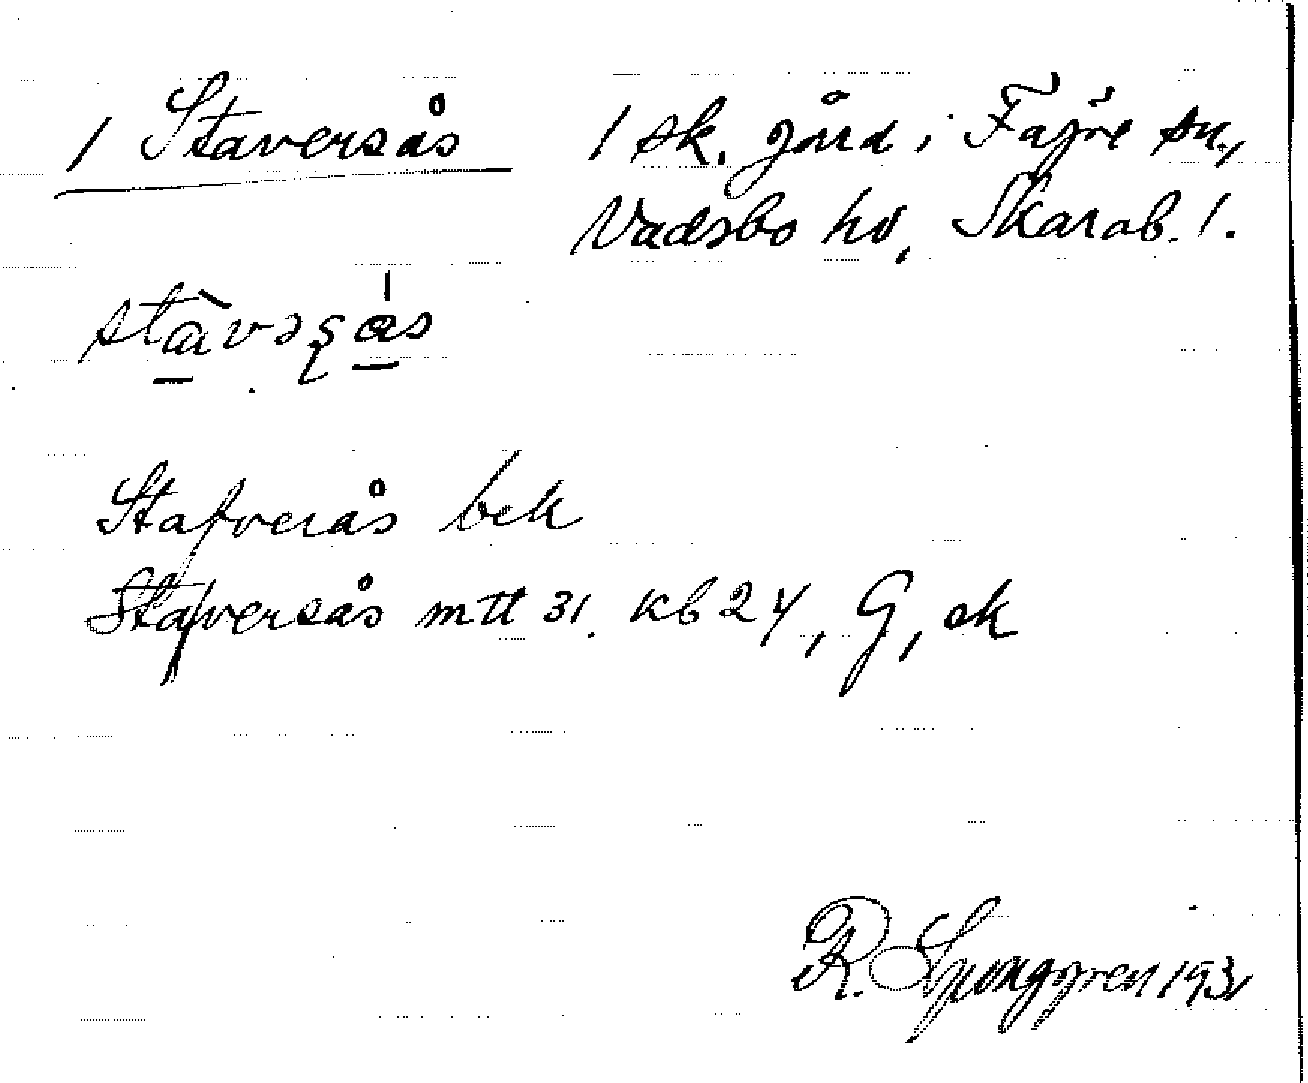 1 Staversås 1 sk. gård i Fägre sn,
Vadsbo hd, Skarab. l.
Stafverås bek
Stafversås mtt 31. kb 24, G, ek
R. Ljunggren 1931